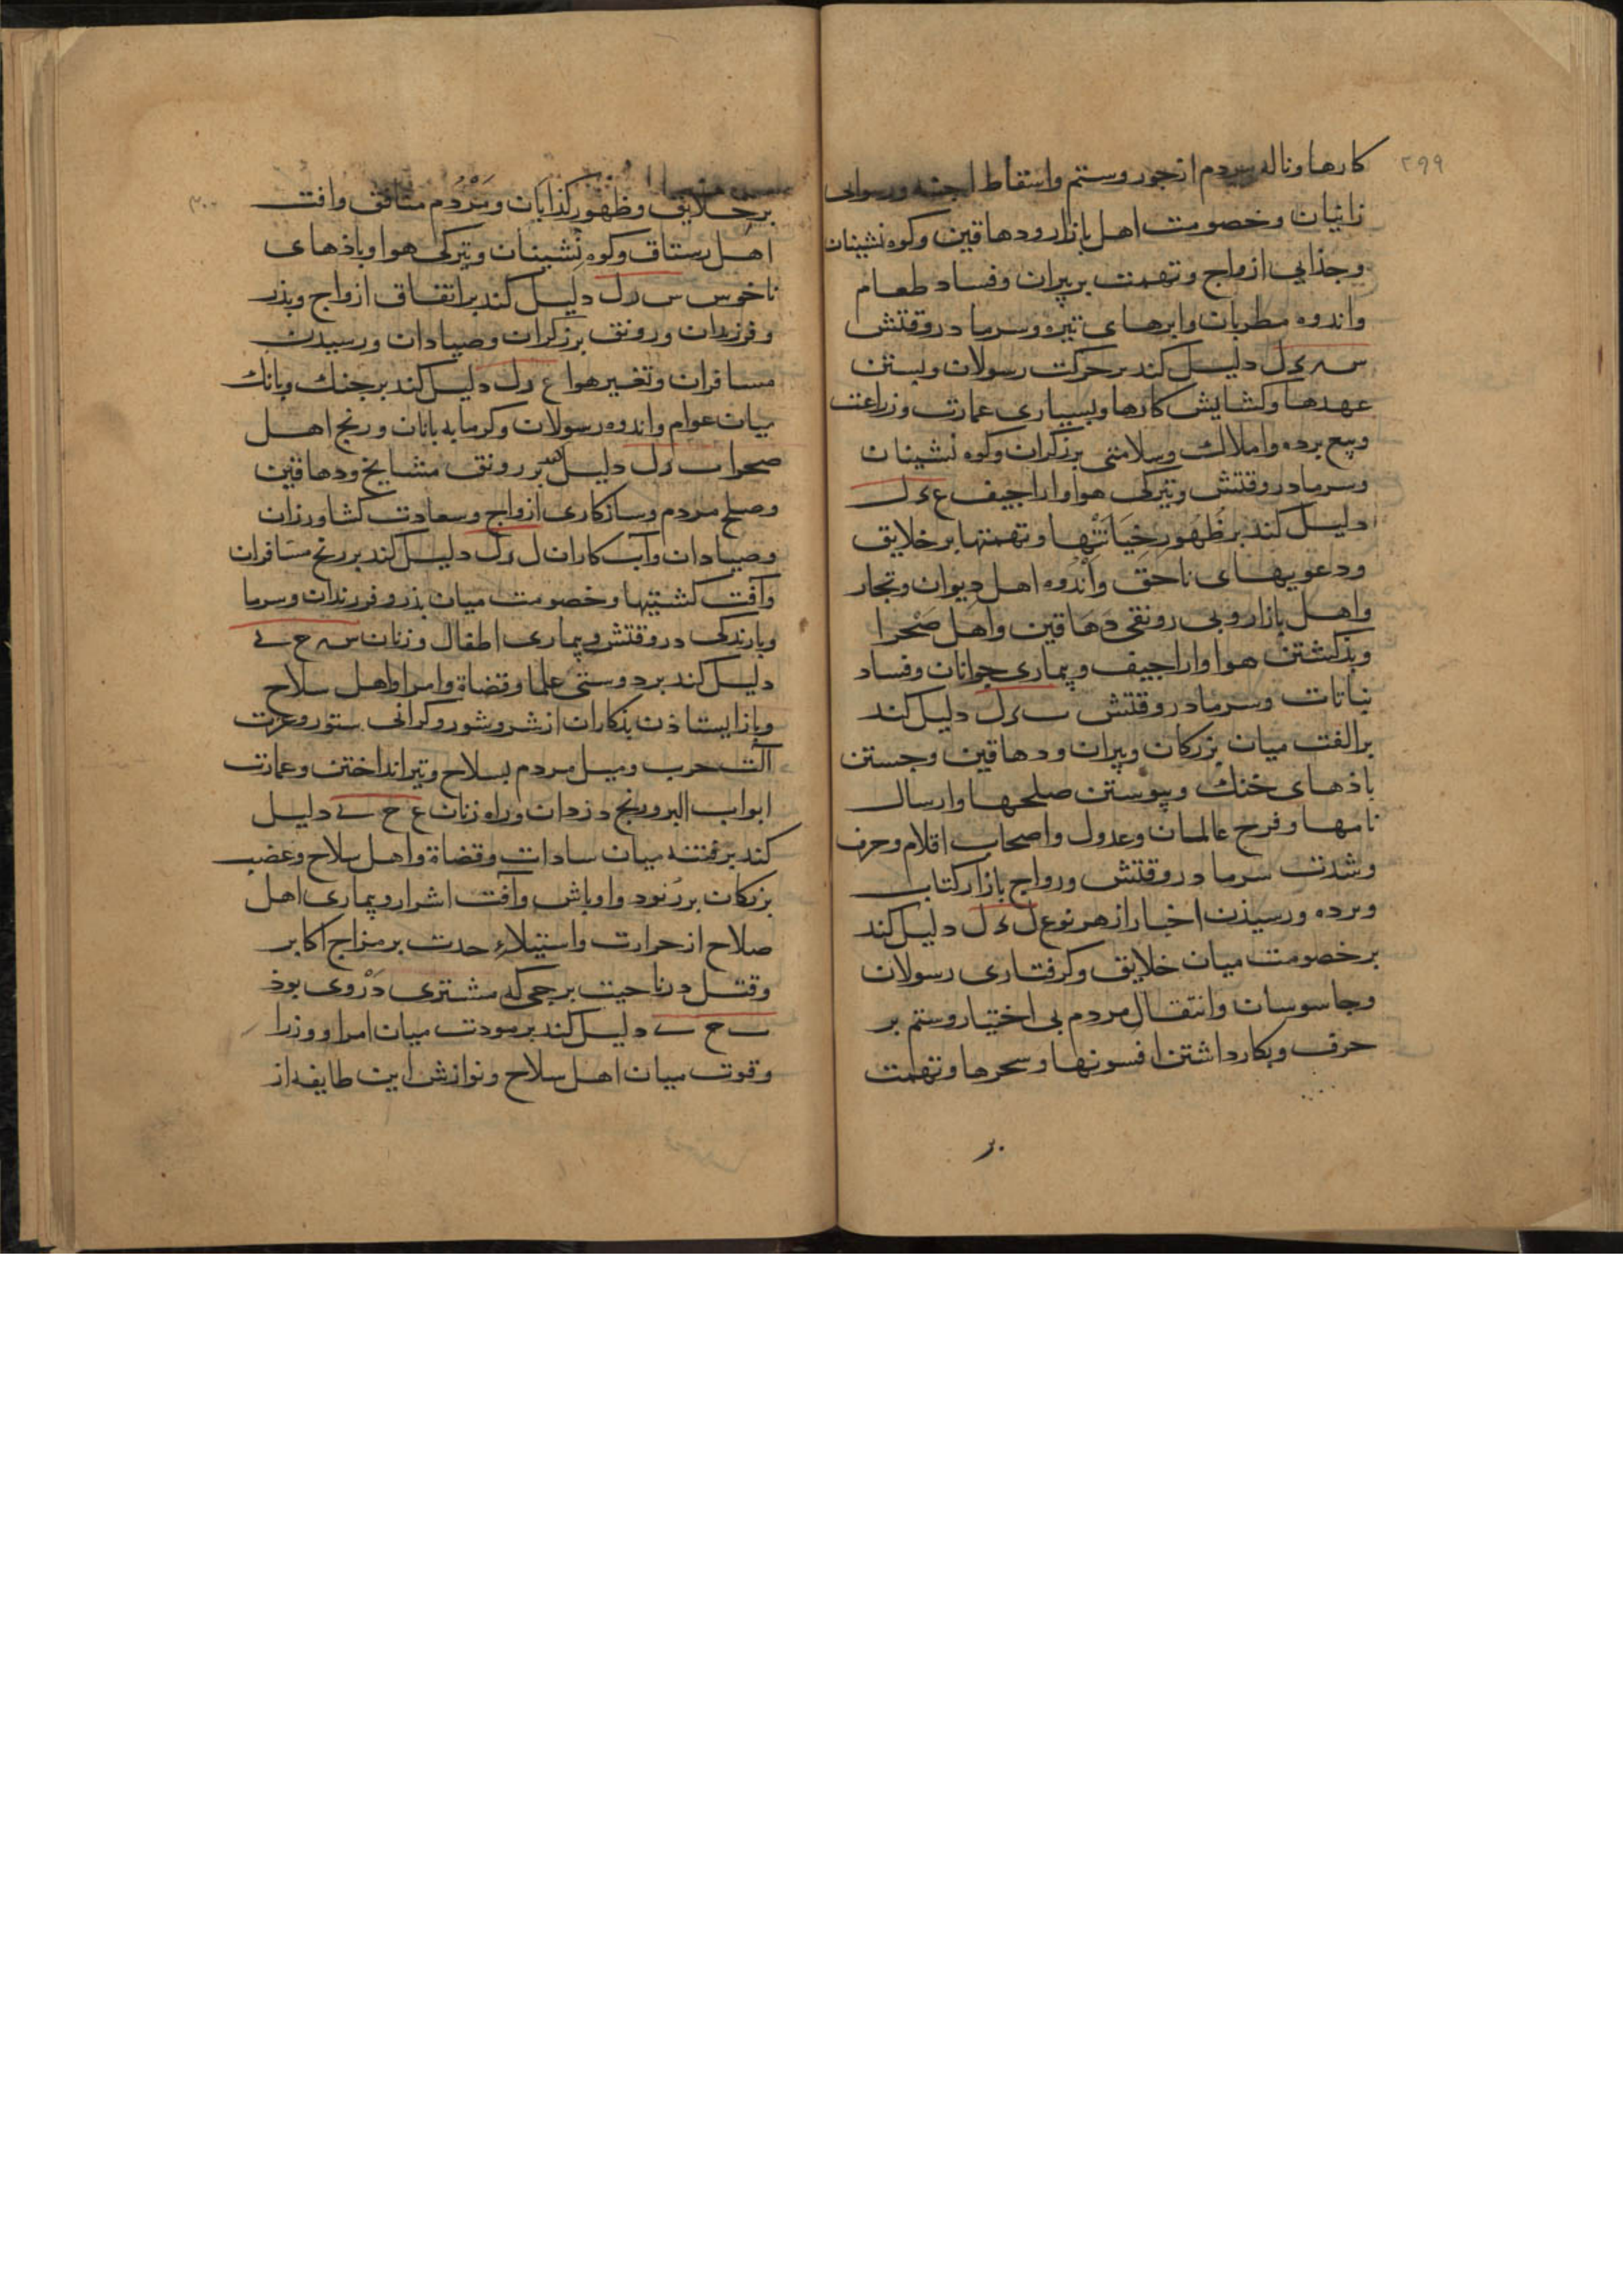 ۲۹۹
کارها و ناله مردم از جور و ستم و اسقاط اجنه و رسوایی
زانیان و خصومت اهل بازار و دهاقین و کوه نشینان
و جذایی ازواج و تهمت بر پیران و فساد طعام
و اندوه مطربان و ابرهای تیره و سرما در وقتش
س ء ل دلیل کند بر حرکت رسولان و بستن
عهدها و کشایش کارها و بسیاری عمارت و زراعت
و بیع برده و املاک و سلامتی برزکران و کوه نشینان
و سرما در وقتش و تیرکی هوا و اراجیف ع ء ل
دلیل کند بر ظُهُورِ خِیَانَتْها و تهمتها بر خلایق
و دعویهای ناحق و اندوه اهل دیوان و تجار
و اهل بازار و بی رونقی دهاقین و اهل صحرا
و بذکشتن هوا و اراجیف و بیماری جوانان و فساد
نباتات و سرما در وقتش ٮ ء ل دلیل کند
بر الفت میان بزرکان و پیران و دهاقین و جستن
باذهای خنک و پیوستن صلحها و ارسال
نامها و فرح عالمان و عدول و اصحاب اقلام و حرف
و شدت سرما در وقتش و رواج بازار کتاب
و برده و رسیذن اخبار از هر نوع ل ء ل دلیل کند
بر خصومت میان خلایق و کرفتاری رسولان
و جاسوسان و انتقال مردم بی اختیار و ستم بر
حرف و بکار داشتن افسونها و سحرها و تهمت
بر
۳۰۰
بر خلایق و ظهور کذابان و مَرْدُم منافق و افت
اهل رستاق و کوه نشینان و تیرکی هوا و باذهای
ناخوس س ر ل دلیل کند بر اتفاق ازواج و پذر
و فرزندان و رونق برزکران و صیادان و رسیدن
مسافران و تغییر هوا ع ر ل دلیل کند بر جنک و بانک
میان عوام و اندوه رسولان و کرمابه بانان و رنج اهل
صحرا ٮ ر ل دلیل کند بر رونق مشایخ و دهاقین
و صلح مردم و سازکاری ازواج و سعادت کشاورزان
و صیادان و آب کاران ل ر ل دلیل کند بر رنج مسافران
و آفت کشتیها و خصومت میان پذر و فرزندان و سرما
و بارندکی در وقتش و بیماری اطفال و زنان س ح ے
دلیل کند بر دوستی علما و قضاة و امرا و اهل سلاح
و باز ایستاذن بذکاران از شر و شور و کرانی ستور و عزت
آلت حرب و میل مردم بسلاح و تیر انداختن و عمارت
ابواب البر و رنج دزدان و راه زنان ع ح ے دلیل
کند بر فتنه میان سادات و قضاة و اهل سلاح و غضب
بزرکان بر رنود و اوباش و آفت اشرار و بیماری اهل
صلاح از حرارت و استیلاء حدت بر مزاج اکابر
و قتل در ناحیت برجی که مشتری دَرْوی بوذ
ٮ ح ے دلیل کند بر مودت میان امرا و وزرا
و قوت میان اهل سلاح و نوازش این طایفه از